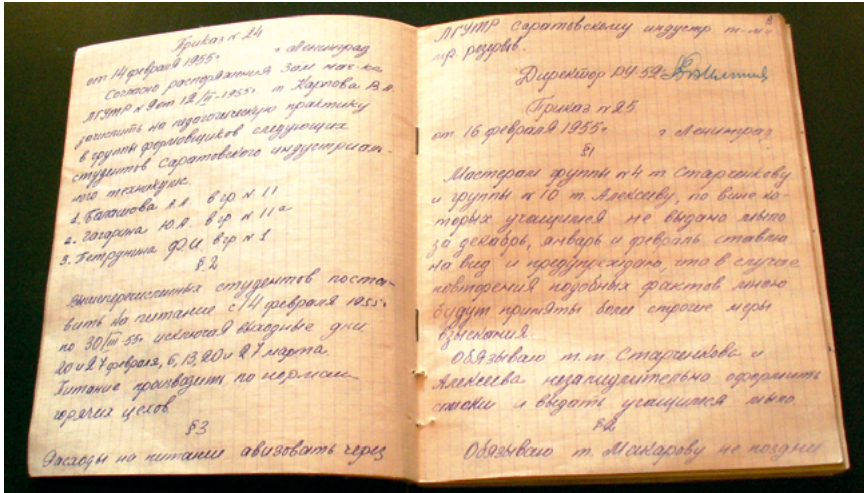 Приказ № 24
от 14 февраля 1955г. г Ленинград
Согласно распоряжения Зам нач-ка
ЛГУТР № 9 от 12/II-1955г т Карпова В.А.
зачислить на педагогическую практику
в группы формовщиков следующих
студентов Саратовского индустриаль-
ного техникума.
1. Балашова А.А. в гр № 11
2. Гагарина Ю.А. в гр № 11а
3. Петрунина Ф.И. в гр № 1
§ 2
Вышеперечисленных студентов поста-
вить на питание с 14 февраля 1955г
по 30/III-55г исключая выходные дни
20 и 27 февраля, 6, 13, 20 и 27 марта.
Питание производить по нормам
горячих цехов
§ 3
Расходы на питание авизовать через
ЛГУТР Саратовскому индустр т-му
тр. резерв.
Директор РУ-52
Приказ № 25
от 16 февраля 1955г. г Ленинград
§1
Мастерам группы № 4 т. Старченкову
и группы № 10 т. Алексееву, по вине ко-
торых учащимся не выдано мыло
за декабрь, январь и февраль ставлю
на вид и предупреждаю, что в случае
повторения подобных фактов мною
будут приняты более строгие меры
взыскания
Обязываю т.т Старченкова и
Алексеева незамедлительно оформить
списки и выдать учащимся мыло
§2
Обязываю т. Макарову не поздне